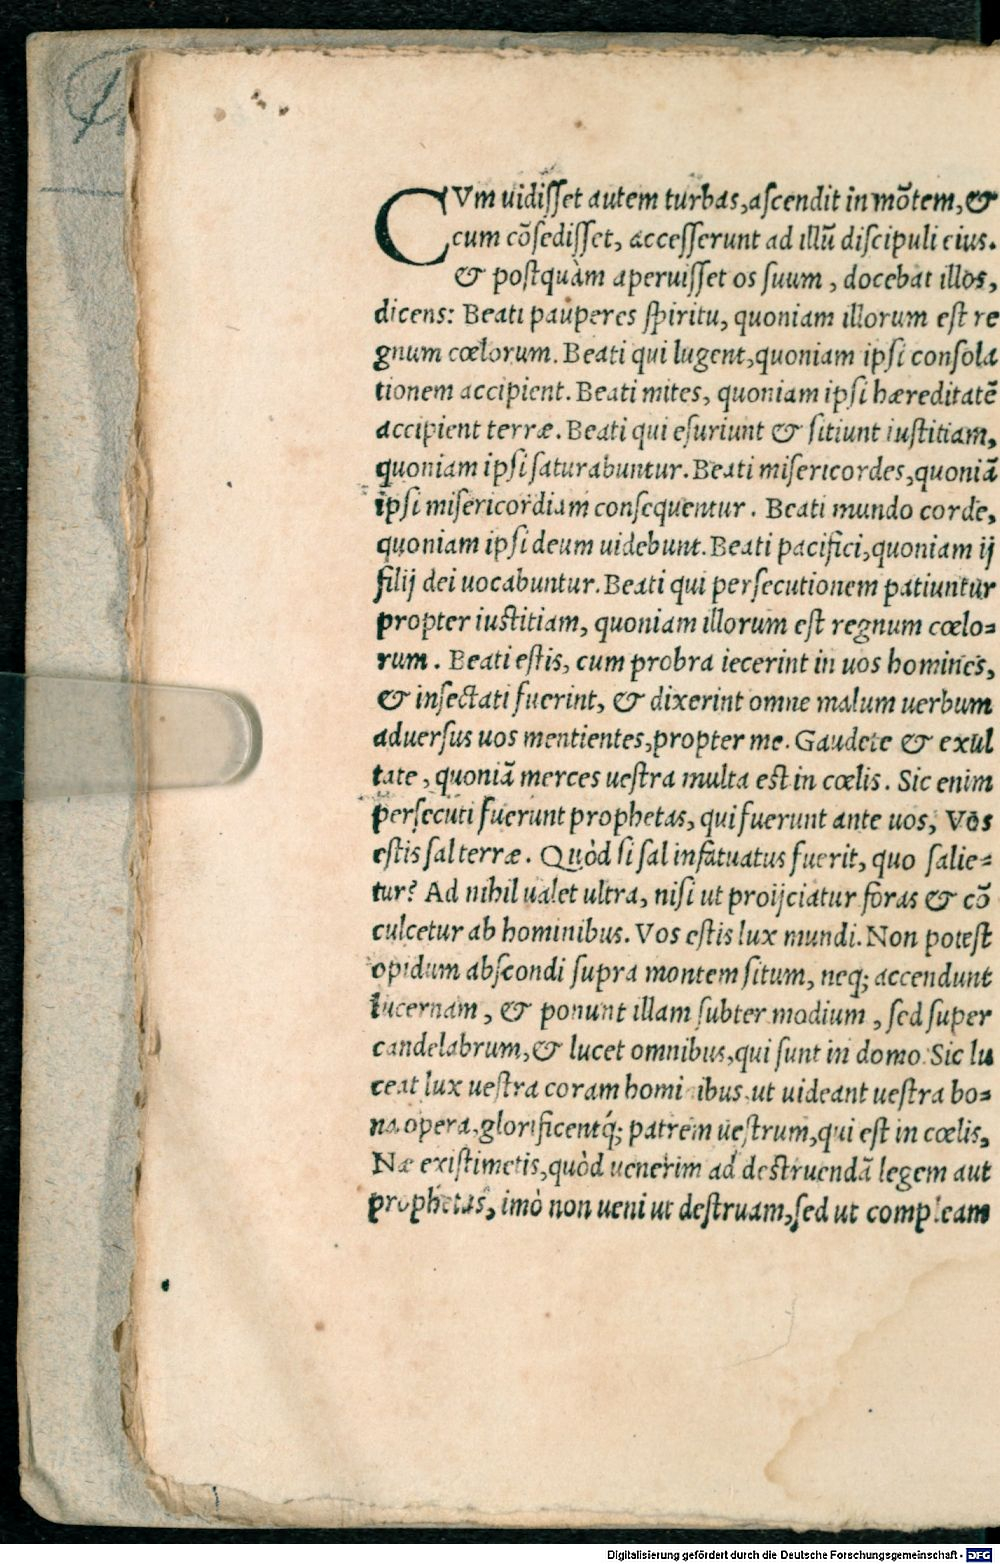 CVm uidisset autem turbas, ascendit in mōtem, &
cum cōsedisset, accesserunt ad illū discipuli eius.
& postquàm aperuisset os suum, docebat illos,
dicens: Beati pauperes spiritu, quoniam illorum est re
gnum cœlorum. Beati qui lugent, quoniam ipsi consola
tionem accipient. Beati mites, quoniam ipsi hæreditatē
accipient terræ. Beati qui esuriunt & sitiunt iustitiam,
quoniam ipsi saturabuntur. Beati misericordes, quoniā
ipsi misericordiam consequentur. Beati mundo corde,
quoniam ipsi deum uidebunt. Beati pacifici, quoniam ij
filij dei uocabuntur. Beati qui persecutionem patiuntur
propter iustitiam, quoniam illorum est regnum cœlo=
rum. Beati estis, cum probra iecerint in uos homines,
& insectati fuerint, & dixerint omne malum uerbum
aduersus uos mentientes, propter me. Gaudete & exul
tate, quoniā merces uestra multa est in cœlis. Sic enim
persecuti fuerunt prophetas, qui fuerunt ante uos, Vos
estis sal terræ. Quòd si sal infatuatus fuerit, quo salie=
tur? Ad nihil ualet ultra, nisi ut proijciatur foras & cō
culcetur ab hominibus. Vos estis lux mundi. Non potest
opidum abscondi supra montem situm, neq; accendunt
lucernam, & ponunt illam subter modium, sed super
candelabrum, & lucet omnibus, qui sunt in domo. Sic lu
ceat lux uestra coram hominibus, ut uideant uestra bo=
na opera, glorificentq́; patrem uestrum, qui est in cœlis,
Næ existimetis, quòd uenerim ad destruendā legem aut
prophetas, imò non ueni ut destruam, sed ut compleam
Digitalisierung gefördert durch die Deutsche Forschungsgemeinschaft - DFG